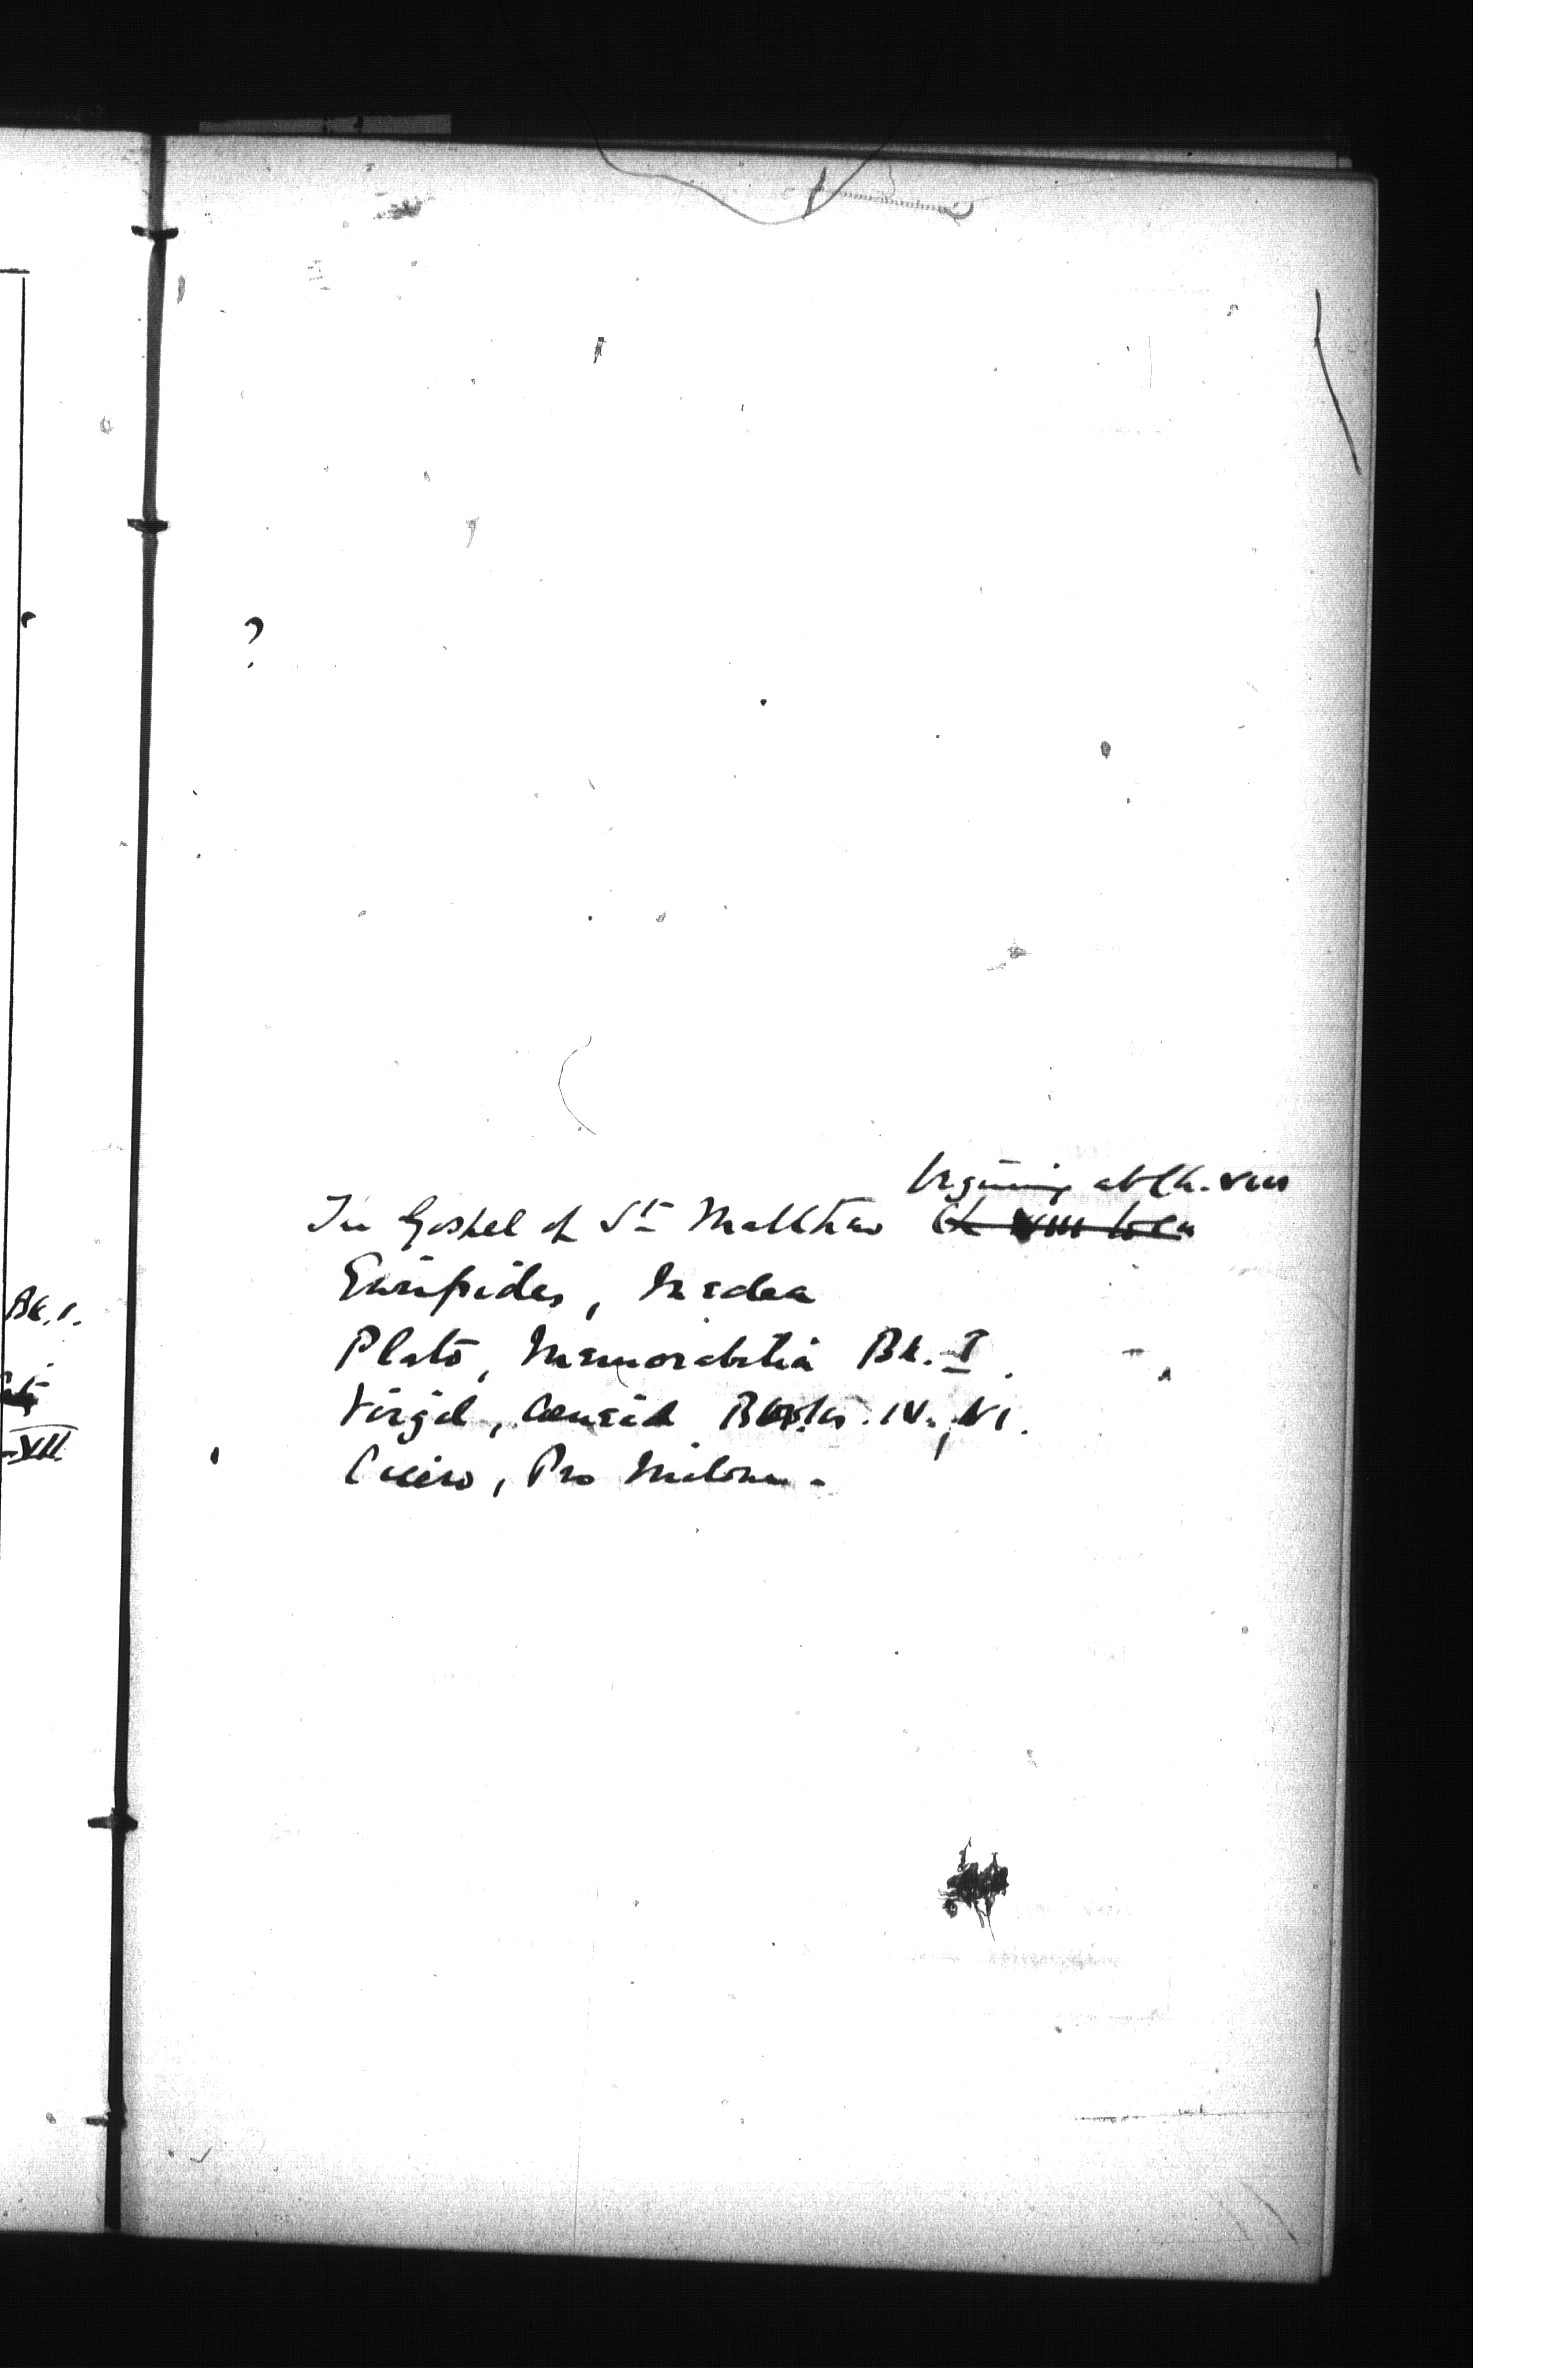 ?
beginning at Ch. VIII
The Gospel of St Matthew Ch VIII to
Euripides, Medea
Plato, Memorabilia Bk. I.
Virgil, Aeneid Books. IV., VI.
Cicero, Pro Milone.
Bk. I.
-VII